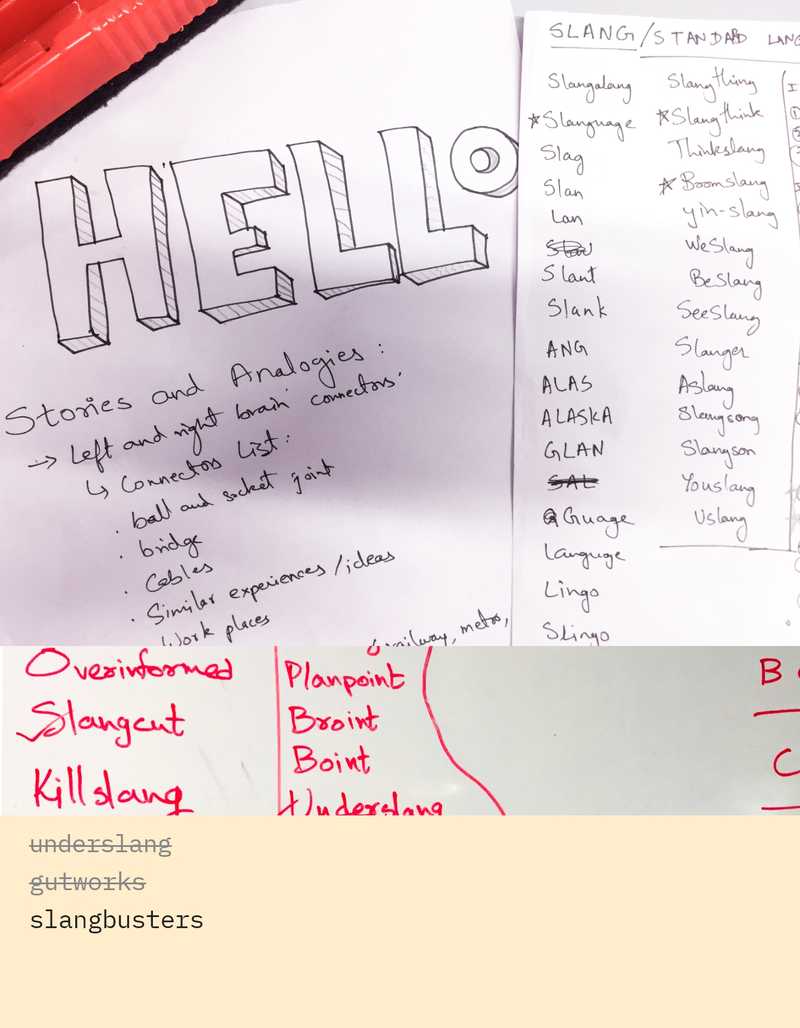 HELLO
Stories and Analogies :
→ Left and right brain connectors'
↳ Connectors List :
· ball and socket joint
· bridge
· Cables
· Similar experiences / ideas
Work places
metro,
SLANG/STANDARD LANG
Slangalang
★Slanguage
Slag
Slan
Lan
Slant
Slank
ANG
ALAS
ALASKA
GLAN
SAL
Guage
Languge
Lingo
Slingo
Slangthing
★Slangthink
Thinkslang
★Boomslang
yin-slang
WeSlang
BeSlang
SeeSlang
Slanger
Aslang
Slangsong
Slangson
Youslang
Uslang
Overinformed
Slangcut
Killslang
Planpoint
Broint
Boint
Underslang
B
C
underslang
gutworks
slangbusters